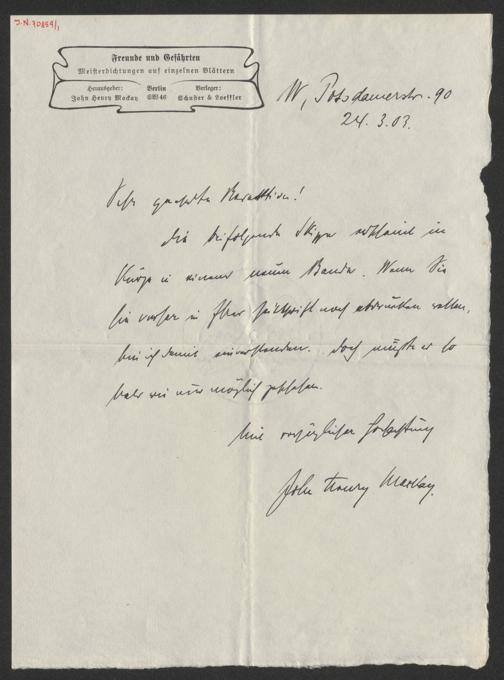 J.N. 70854/1
Freunde und Gefährten
Meisterdichtungen auf einzelnen Blättern
Herausgeber: John Henry Mackay
Berlin SW46
Verleger: Schuster & Loeffler
W, Potsdamerstr. 90
24. 3. 03.
Sehr geehrte Redaktion!
Die beifolgende Skizze erscheint in
Kürze in einem neuen Bande. Wenn Sie
sie vorher in Ihrer Zeitschrift noch abdrucken wollen,
bin ich damit einverstanden. Doch müßte es so
bald wie nur möglich geschehen.
Mit vorzüglicher Hochachtung
John Henry Mackay.